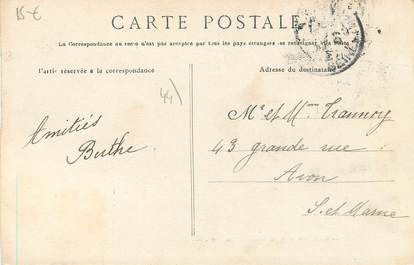 15 €
CARTE POSTALE
La Correspondance au recto n'est pas acceptée par tous les pays étrangers - se renseigner à la Poste
Partie réservée à la correspondance
Adresse du destinataire
44
Amitiés
Berthe
Mr et Mme Trannoy
43 grande rue
Avon
S. et Marne